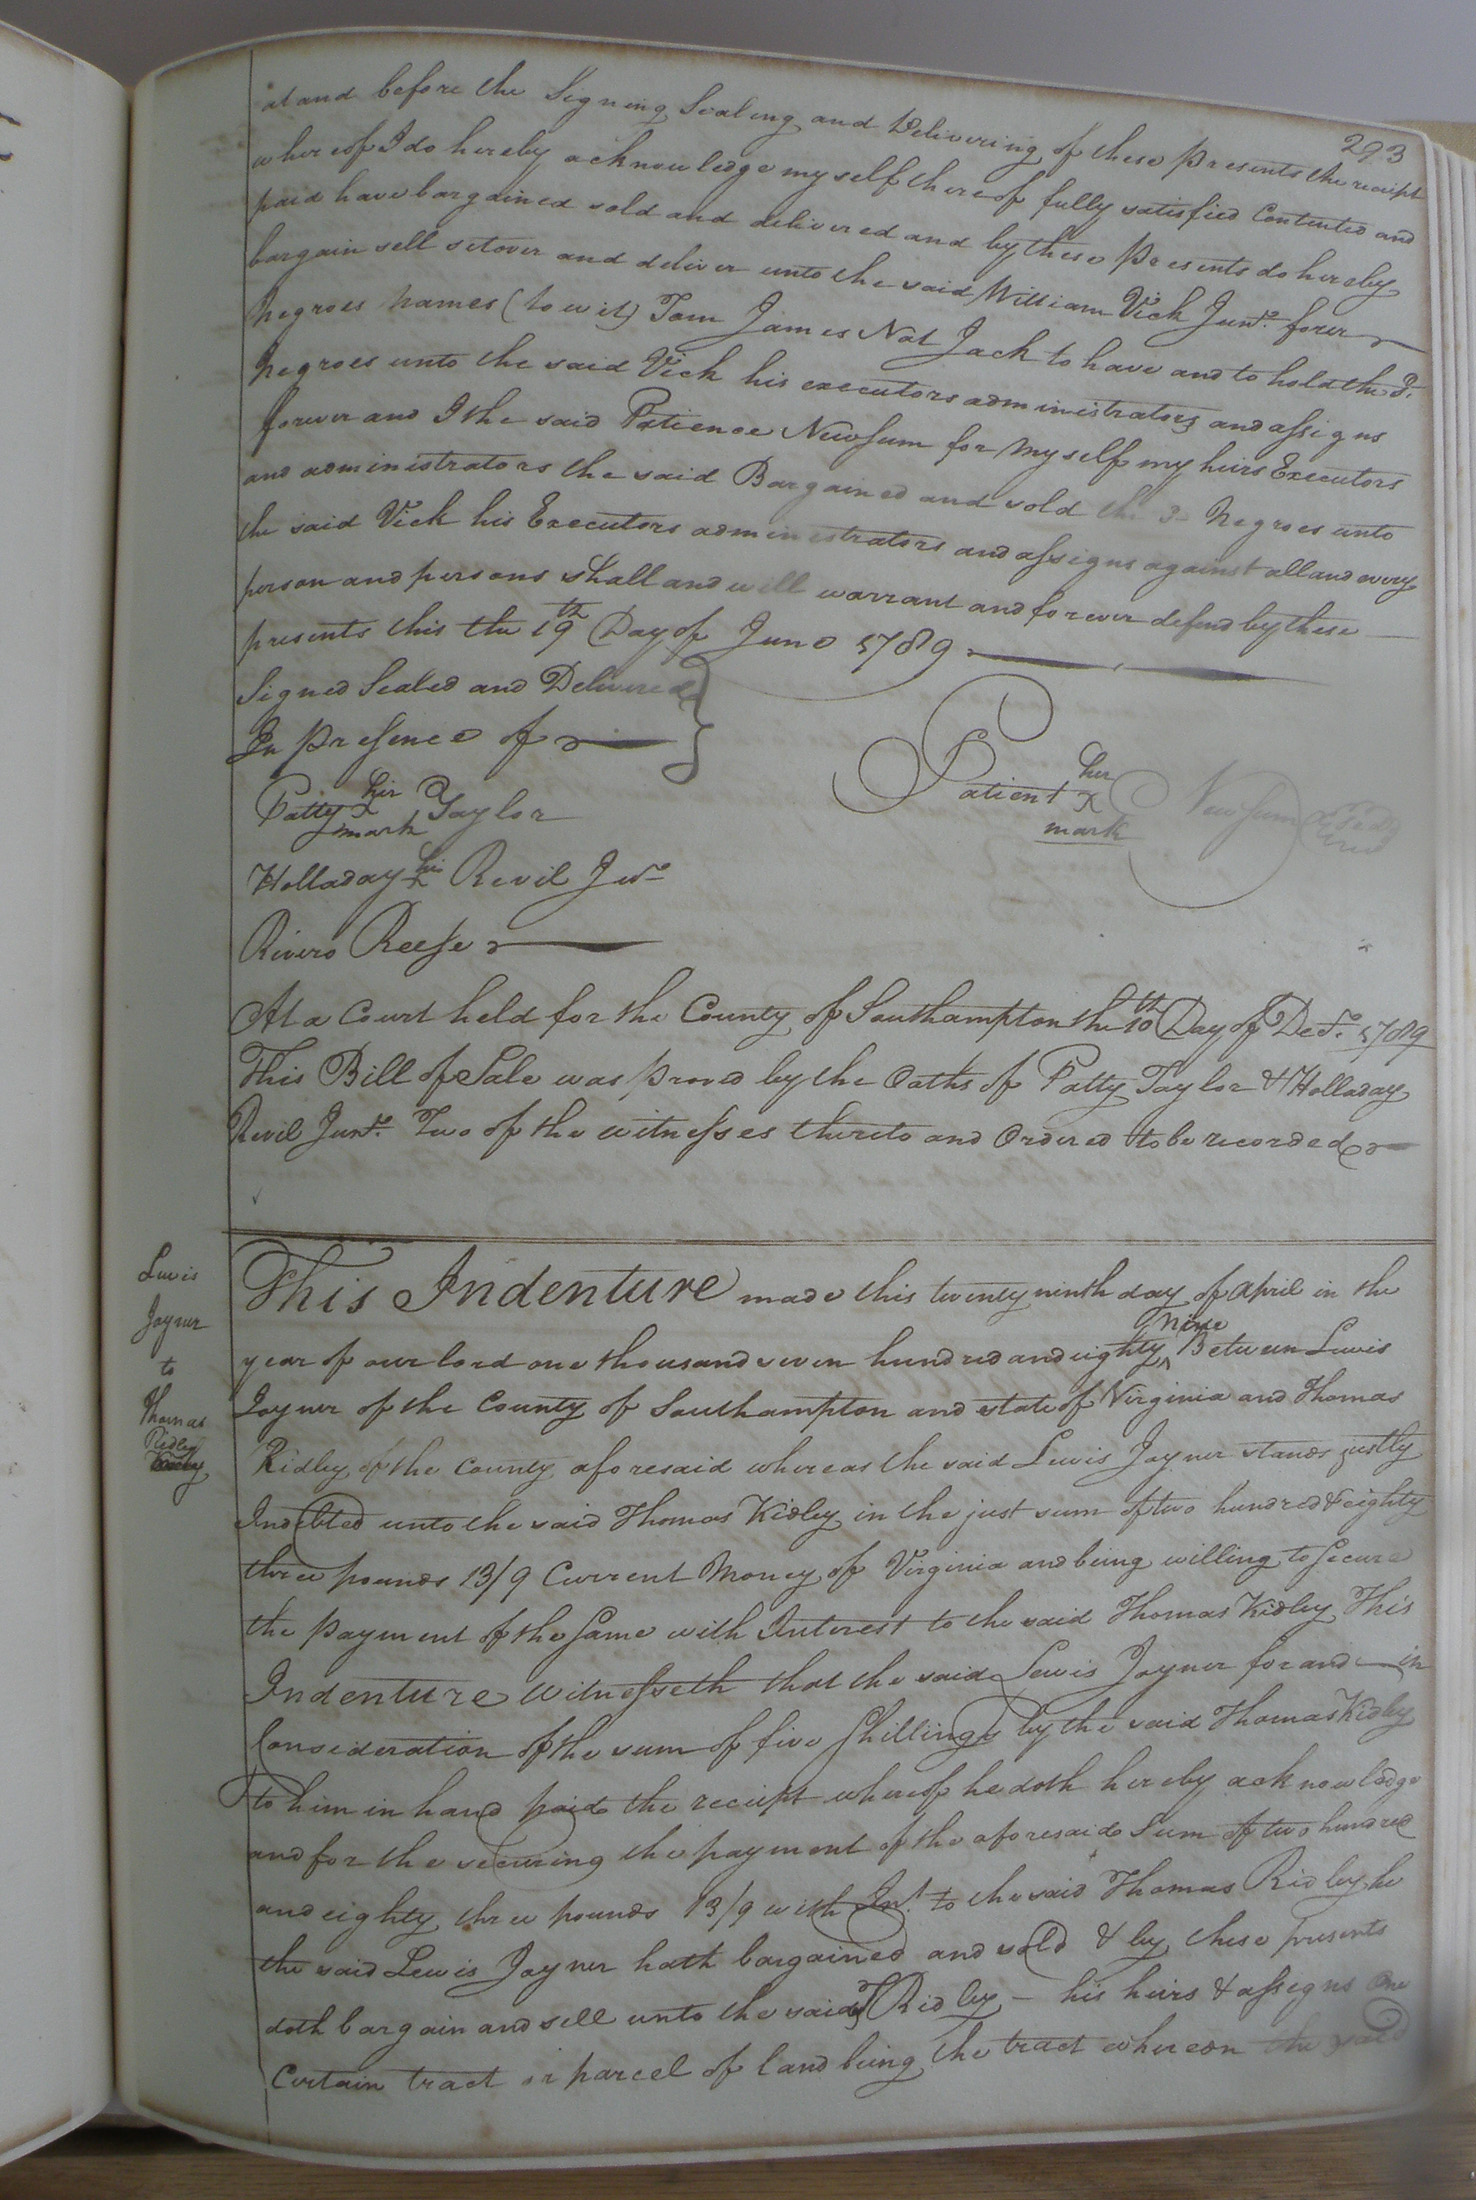 293
at and before the Signing Sealing and Delivering of these presents the receipt
whereof I do hereby acknowledge my self thereof fully satisfied Contented and
paid have bargained sold and delivered and by these presents do hereby
bargain sell setover and deliver unto the said William Vick Junr. forer
Negroes names (to wit) Tom James Nat Jack to have and to hold the sd.
Negroes unto the said Vick his executors administrators and assigns
forever and I the said Patience Newsum for my self my heirs Executors
and administrators the said Bargained and sold the Negroes unto
the said Vick his Executors administrators and assigns against all and every
person and persons shall and will warrant and forever defend by these
presents this the 19th Day of June 1789
Signed Sealed and Delivered
In presence of
Patty her X mark Taylor
Patient her X mark Newsum
Holladay his X Revil Jur
Rivers Reese
At a Court held for the County of Southampton the 10th Day of Decr. 1789
This Bill of Sale was proved by the Oaths of Patty Taylor & Holladay
Revil Junr. Two of the witnesses thereto and Ordered to be recorded
Lewis
Joyner
to
Thomas
Ridley
This Indenture made this twenty ninth day of April in the
year of our lord one thousand seven hundred and eighty nine Between Lewis
Joyner of the County of Southampton and state of Virginia and Thomas
Ridley of the County aforesaid whereas the said Lewis Joyner stands justly
Indebted unto the said Thomas Ridley in the just sum of two hundred & eighty
three pounds 13/9 Current Money of Virginia and being willing to Secure
the payment of the Same with Interest to the said Thomas Ridley This
Indenture Witnesseth that the said Lewis Joyner for and in
Consideration of the sum of five Shillings by the said Thomas Ridley
to him in hand paid the receipt whereof he doth hereby acknowledge
and for the securing the payment of the aforesaid Sum of two hundred
and eighty three pounds 13/9 with Int. to the said Thomas Ridley he
the said Lewis Joyner hath bargained and sold & by these presents
doth bargain and sell unto the said T Ridley his heirs & assigns One
Certain tract or parcel of land being the tract whereon the said